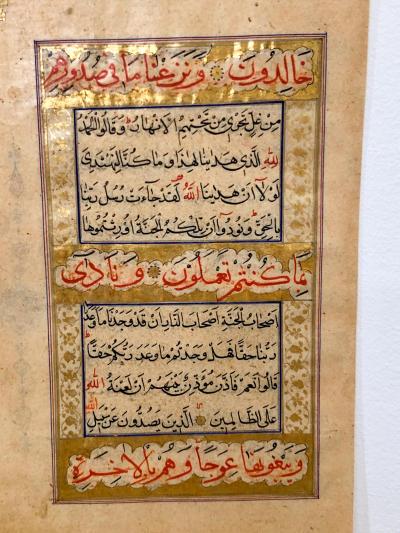 خَالِدُونَ وَنَزَعْنَا مَا فِي صُدُورِهِمْ
مِنْ غِلٍّ تَجْرِي مِنْ تَحْتِهِمُ الْأَنْهَارُ وَقَالُوا الْحَمْدُ
لِلَّهِ الَّذِي هَدَانَا لِهَذَا وَمَا كُنَّا لِنَهْتَدِيَ
لَوْلَا أَنْ هَدَانَا اللَّهُ لَقَدْ جَاءَتْ رُسُلُ رَبِّنَا
بِالْحَقِّ وَنُودُوا أَنْ تِلْكُمُ الْجَنَّةُ أُورِثْتُمُوهَا
بِمَا كُنْتُمْ تَعْمَلُونَ وَنَادَى
أَصْحَابُ الْجَنَّةِ أَصْحَابَ النَّارِ أَنْ قَدْ وَجَدْنَا مَا وَعَدَنَا
رَبُّنَا حَقًّا فَهَلْ وَجَدْتُمْ مَا وَعَدَ رَبُّكُمْ حَقًّا
قَالُوا نَعَمْ فَأَذَّنَ مُؤَذِّنٌ بَيْنَهُمْ أَنْ لَعْنَةُ اللَّهِ
عَلَى الظَّالِمِينَ الَّذِينَ يَصُدُّونَ عَنْ سَبِيلِ اللَّهِ
وَيَبْغُونَهَا عِوَجًا وَهُمْ بِالْآخِرَةِ